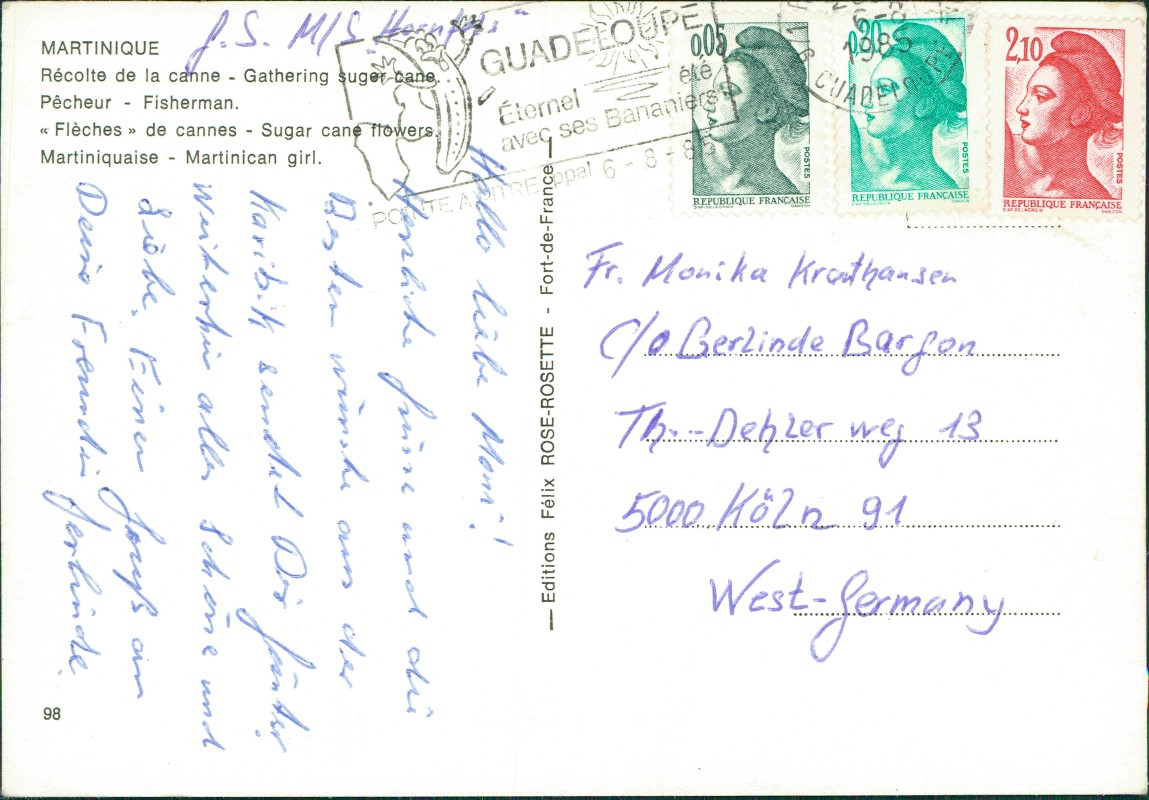 MARTINIQUE
Récolte de la canne - Gathering suger cane.
Pêcheur - Fisherman.
« Flèches » de cannes - Sugar cane flowers.
Martiniquaise - Martinican girl.
M/S
Hallo liebe Moni!
Herzliche Grüsse und die
Besten wünsche aus der
Karibik sendet Dir Günter
Weiterhin alles Schöne und
Liebe. Einen Gruß an
Deine Freundin Gerlinde.
98
Editions Félix ROSE-ROSETTE - Fort-de-France
GUADELOUPE
été
Éternel
avec ses Bananiers
POINTE A PITRE ppal 6-8-85
6-8
1985
GUADELOUPE
0,05
POSTES
REPUBLIQUE FRANÇAISE
0,20
POSTES
REPUBLIQUE FRANÇAISE
2,10
POSTES
REPUBLIQUE FRANÇAISE
Fr. Monika Krathausen
C/o Gerlinde Barfon
Th.-Dehler weg 13
5000 Köln 91
West-Germany